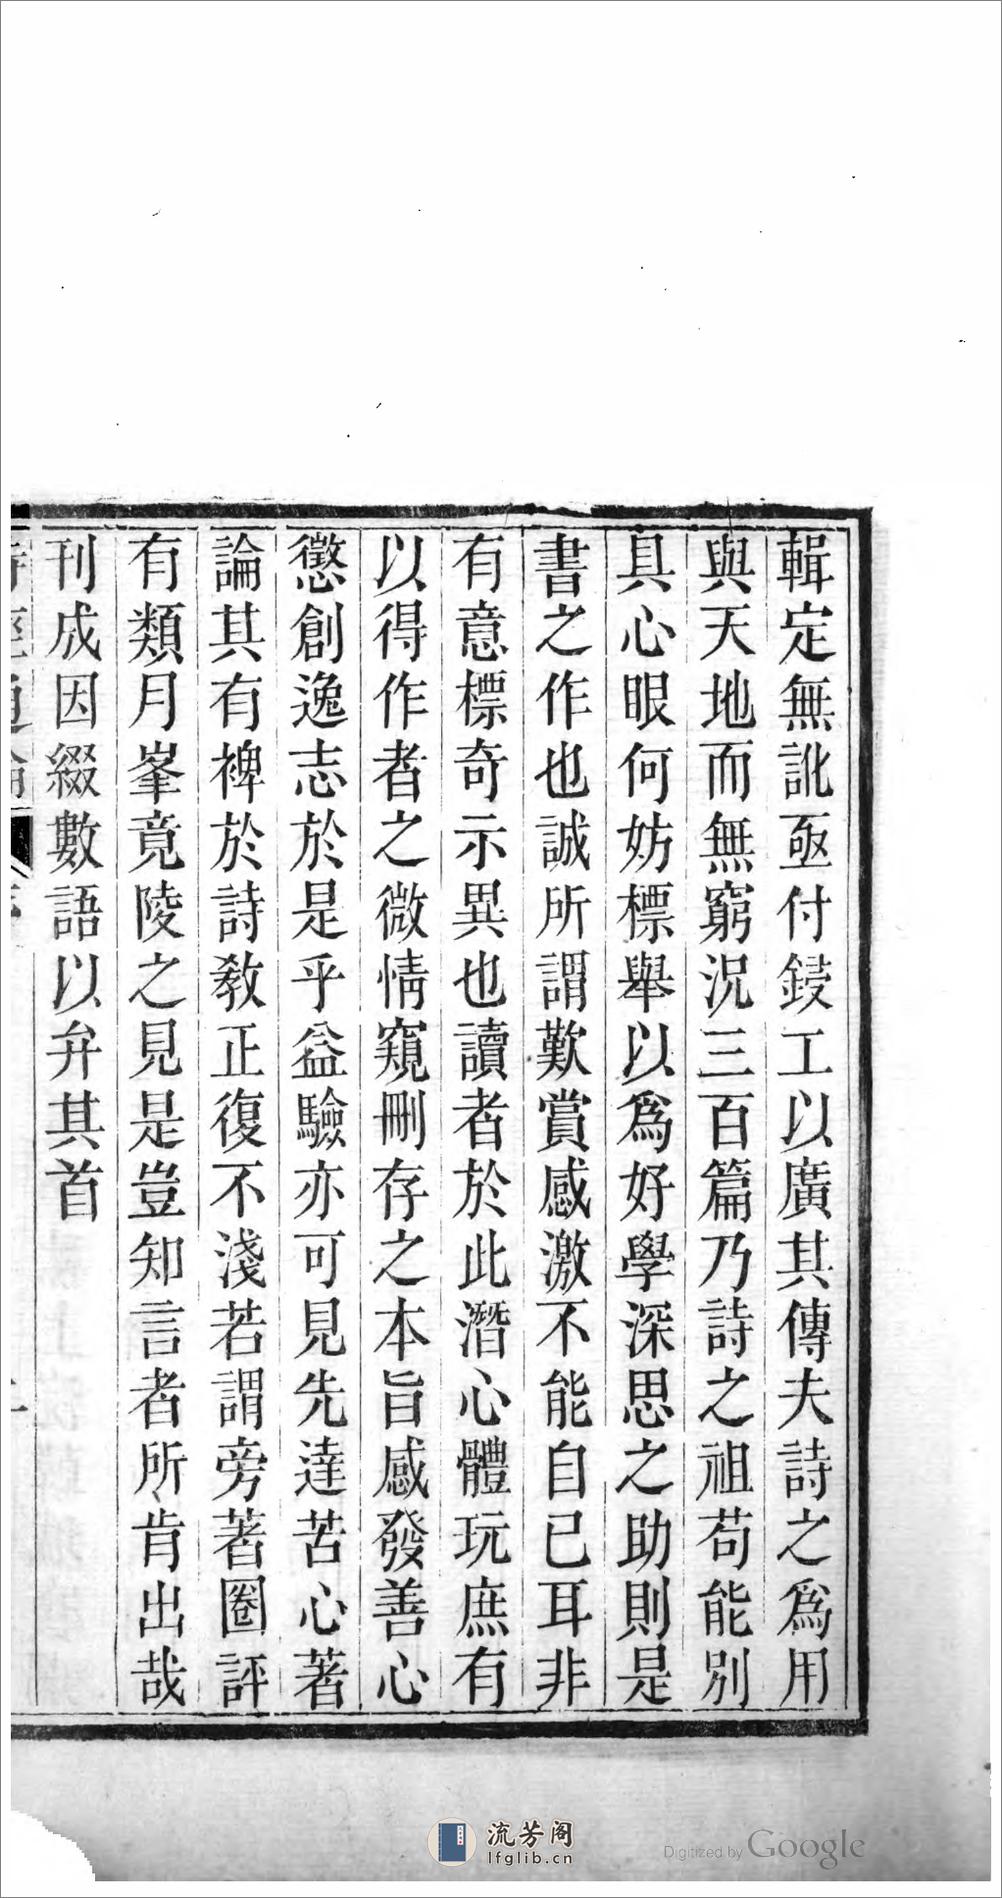 輯定無訛亟付鋟工以廣其傳夫詩之爲用
與天地而無窮況三百篇乃詩之祖苟能別
具心眼何妨標舉以爲好學深思之助則是
書之作也誠所謂歎賞感激不能自已耳非
有意標奇示異也讀者於此潛心體玩庶有
以得作者之微情窺刪存之本旨感發善心
懲創逸志於是乎益驗亦可見先達苦心著
論其有裨於詩教正復不淺若謂旁著圈評
有類月峯竟陵之見是豈知言者所肯出哉
刊成因綴數語以弁其首
流芳阁
lfglib.cn
Digitized by Google